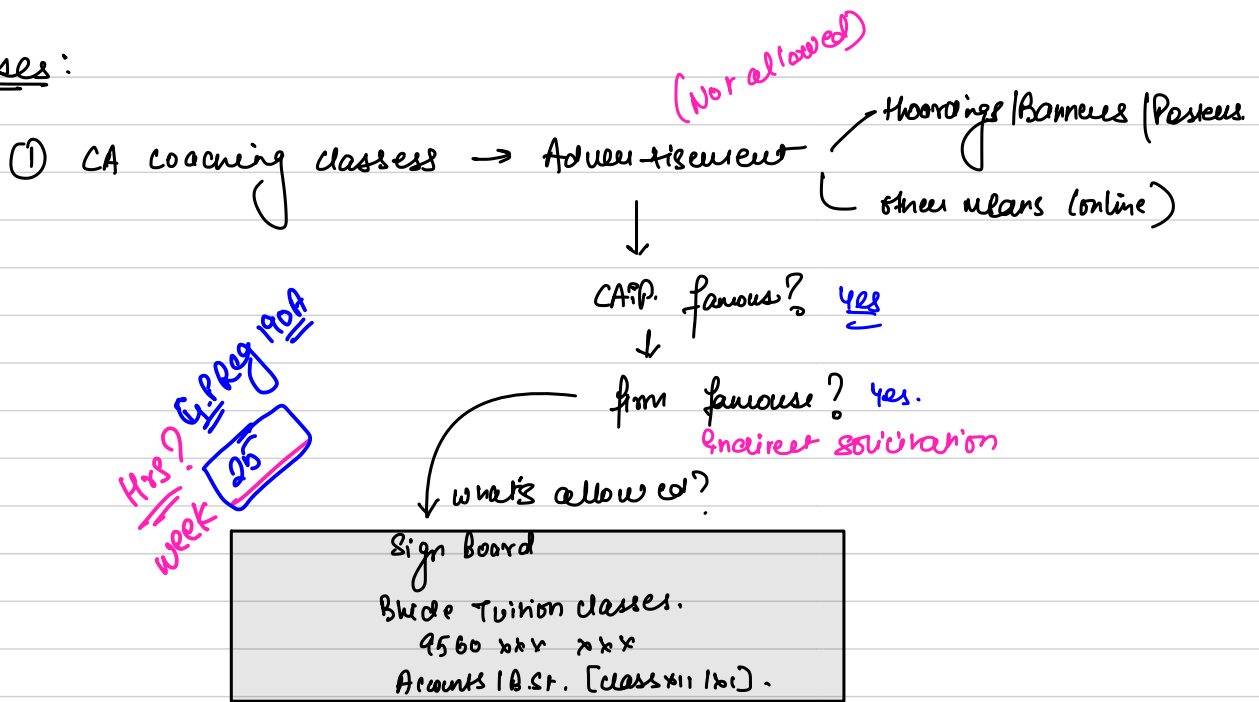 ses:
(Not allowed)
① CA coaching classess → Advertisement
Hoardings / Banners / Posters.
other means (online)
CAiP. famous? yes
firm famouse? yes.
indirect solicitation
G.P Reg 190A
Hrs? 25
week
what's allowed?
Sign Board
Bhide Tuition classes.
9560 xxx xxx
Accounts / B.St. [class XII / XI].